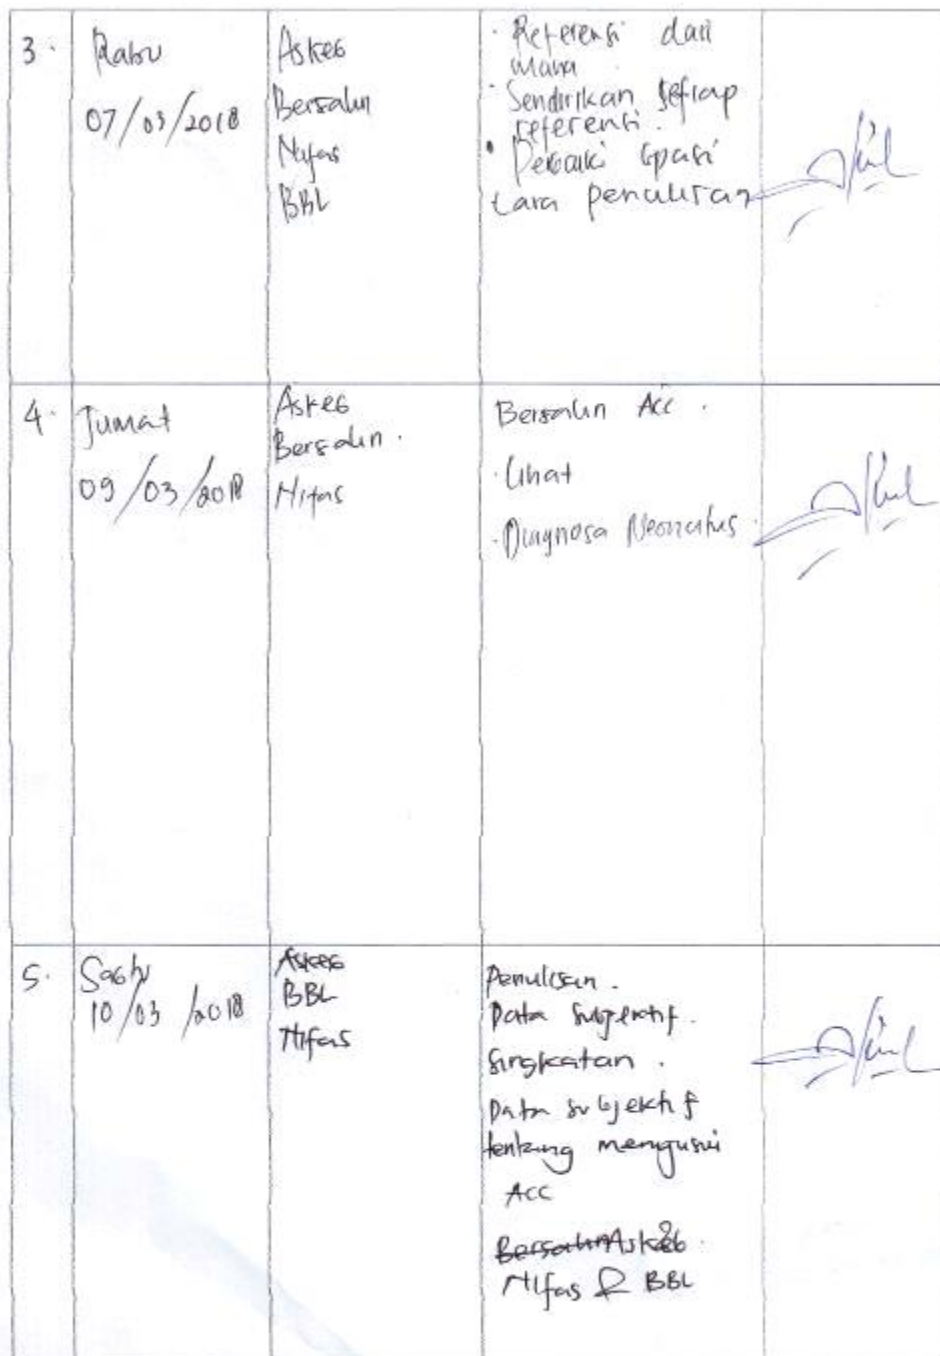 3.
Rabu
07/03/2018
Askeb
Bersalin
Nifas
BBL
· Referensi dari
mana
· Sendirikan setiap
referensi.
· Perbaiki spasi
cara penulisan
4.
Jumat
09/03/2018
Askeb
Bersalin.
Nifas
Bersalin Acc.
· Lihat
· Diagnosa Neonatus.
5.
Sabtu
10/03/2018
Askeb
BBL
Nifas
Penulisan.
Data Subjektif.
Singkatan.
Data subjektif
tentang menyusui
ACC
Bersalin Askeb
Nifas & BBL